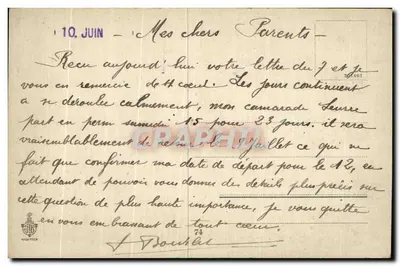 10 JUIN - Mes chers Parents -
Recu aujourd'hui votre lettre du 7 et je
vous en remercie de tt cœur. Les jours continuent
a se derouler calmement, mon camarade
part en perm samedi 15 pour 23 jours. il sera
vraisemblablement de retour le juillet ce qui ne
fait que confirmer ma date de départ pour le 12, en
attendant de pouvoir vous donner des details plus précis sur
cette question de plus haute importance, je vous quitte
en vous embrassant de tout cœur.
74